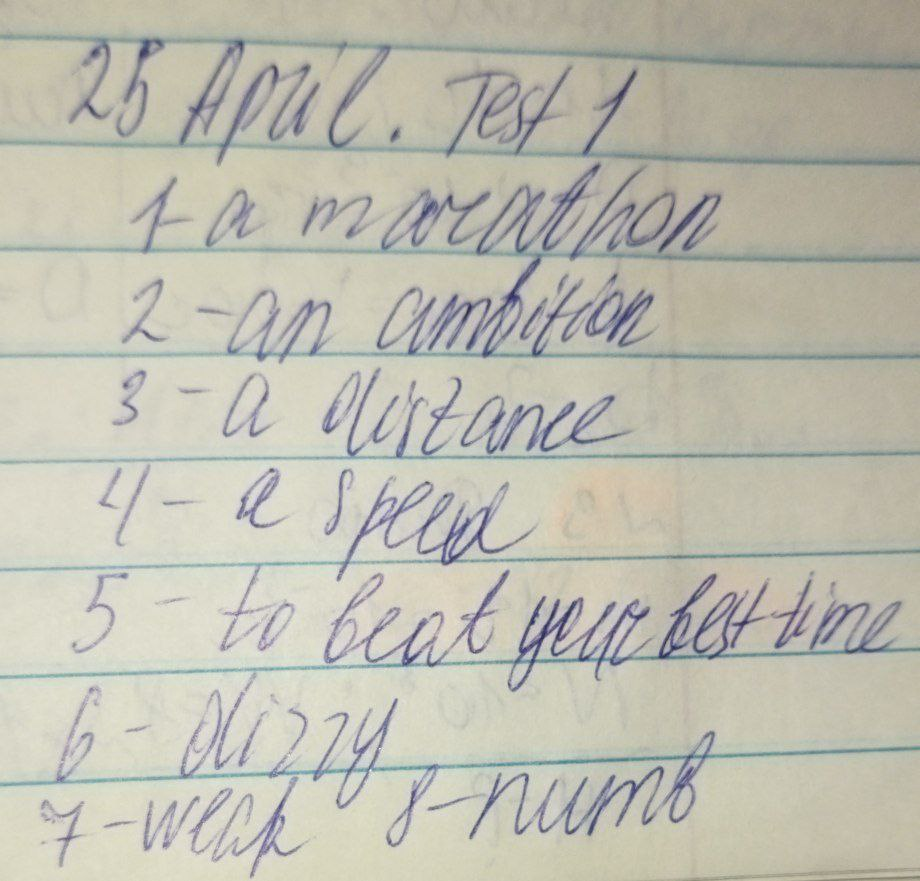 25 April. Test 1
1-a marathon
2-an ambition
3-a distance
4-a speed
5-to beat your best time
6-dizzy
7-weak 8-numb